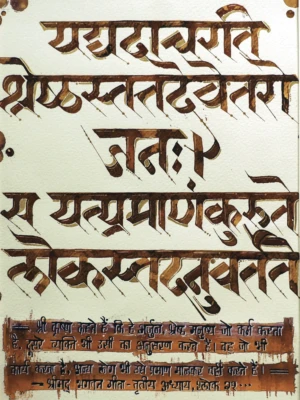 यद्यदाचरति
श्रेष्ठस्तत्तदेवेतरो
जनः।
स यत्प्रमाणंकुरुते
लोकस्तदनुवर्तते
श्री कृष्ण कहते हैं कि हे अर्जुन श्रेष्ठ मनुष्य जो कर्म करता
है, दूसरे व्यक्ति भी उसी का अनुसरण करते है। वह जो भी
कार्य करता है, अन्य लोग भी उसे प्रमाण मानकर वही करते है।
श्रीमद् भगवत गीता - तृतीय अध्याय, श्लोक २१